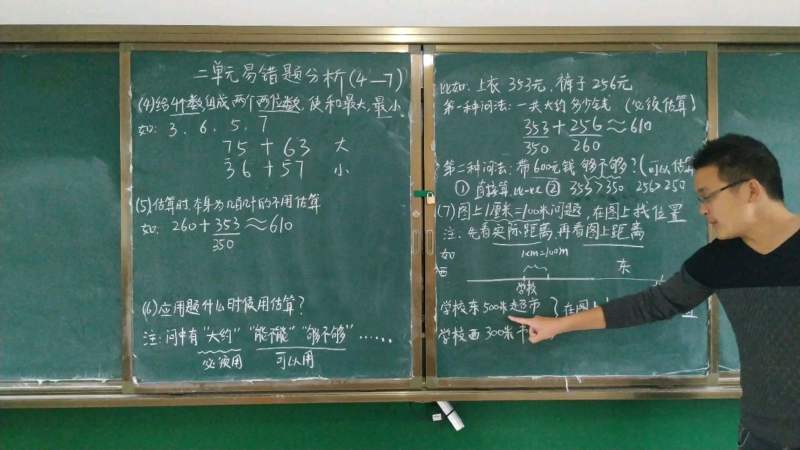 二单元易错题分析(4—7)
(4)给4个数组成两个两位数,使和最大,最小
如: 3、6、5、7
75+63 大
36+57 小
(5)估算时,本身为几百几十的不用估算
如: 260+353≈610
350
(6)应用题什么时候使用估算?
注:问中有“大约”“能不能”“够不够”……
必须用 可以用
比如:上衣353元,裤子256元
第一种问法:一共大约多少钱 (必须估算)
353+256≈610
350 260
第二种问法:带600元钱够不够?(可以估
① 直接算, ② 353>350 256>250
(7)图上1厘米=100米问题,在图上找位置
注:先看实际距离,再看图上距离
如 1cm=100m
西 东
学校
学校东500米是超市 }在图上
学校西300米